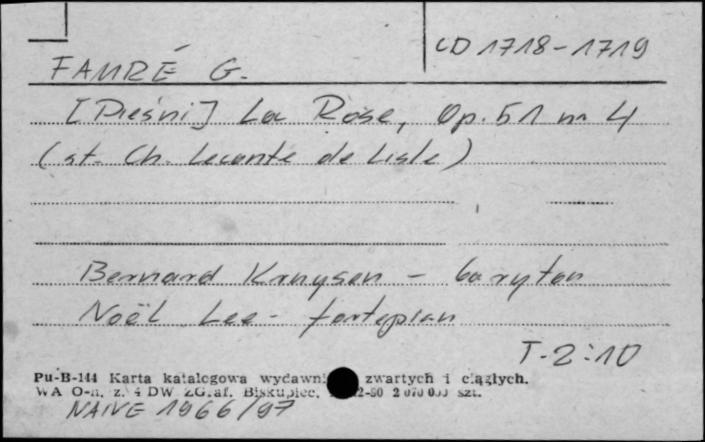 CD 1718-1719
FAURÉ G.
[Pieśni] La Rose, Op. 51 nr 4
(st. Ch. Leconte de Lisle)
Bernard Kruysen - baryton
Noël Lee - fortepian
T-2:10
Pu-B-144 Karta katalogowa wydawni zwartych i ciągłych.
WA O-n, z. 4 DW ZGraf. Biskupiec, 2-80 2 070 000 szt.
NAIVE 1966/97